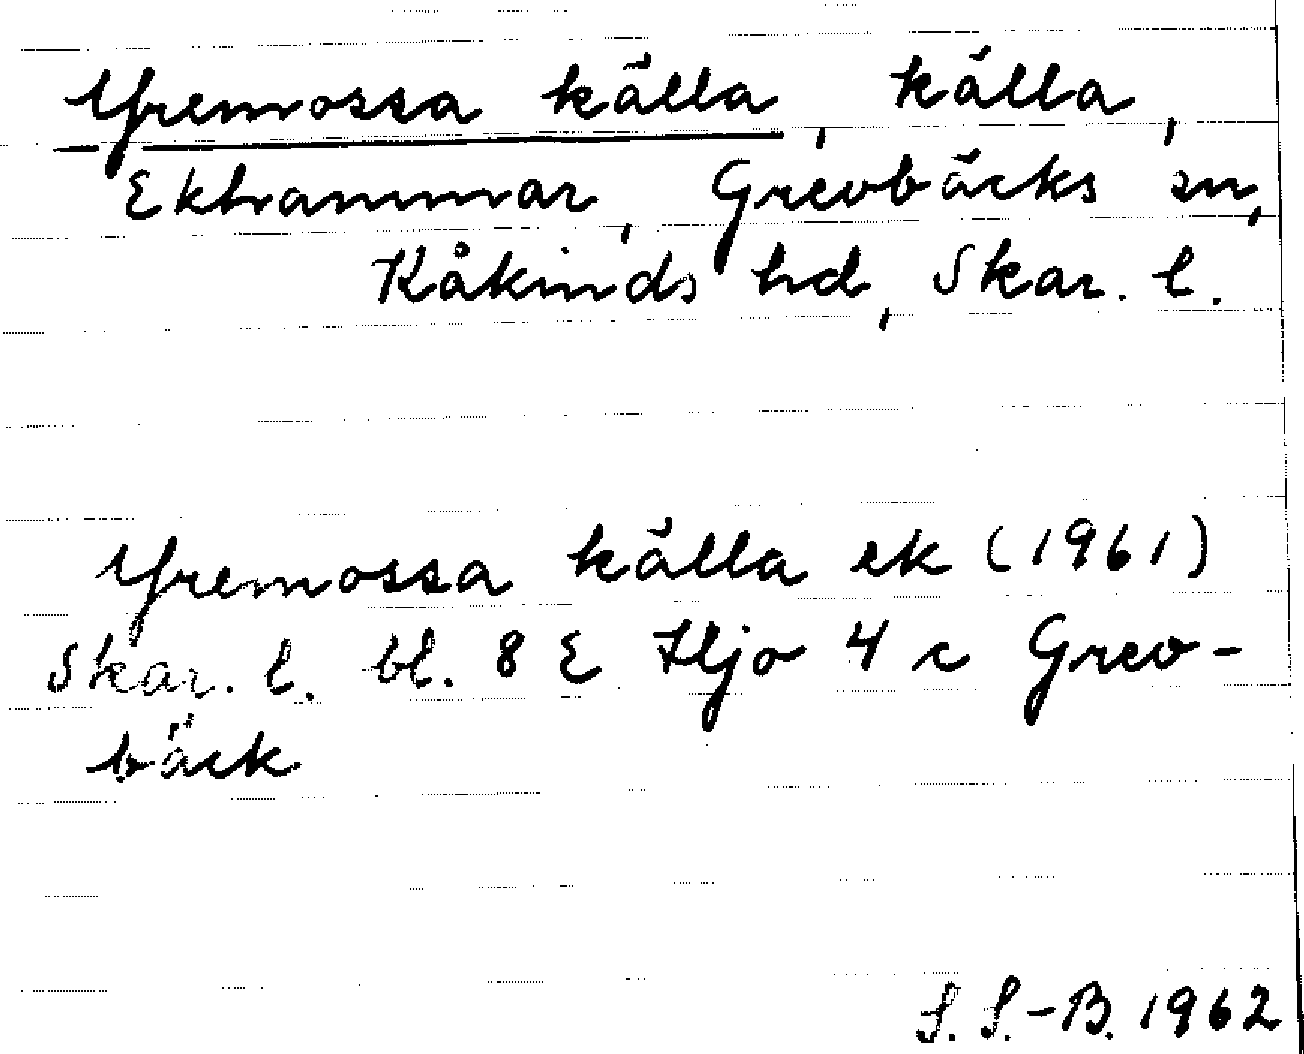 Yremossa källa, källa,
Ekhammar, Grevbäcks sn,
Kåkinds hd, Skar. l.
Yremossa källa ek (1961)
Skar. l. bl. 8 E Hjo 4 c Grev-
bäck
S. S.-B. 1962